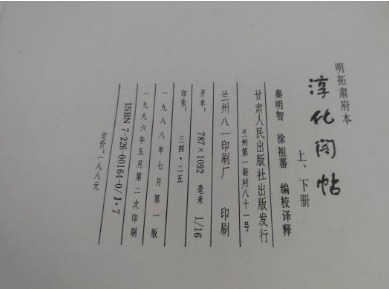 明拓肃府本
淳化阁帖
上、下册
秦明智 徐祖蕃 编校译释
甘肃人民出版社出版发行
兰州第一新村八十一号
兰州八一印刷厂 印刷
开本: 787×1092 毫米 1/16
印张: 三四·二五
一九八八年七月第一版
一九九六年五月第二次印刷
ISBN 7-226-00164-0/J·7
定价: 一八八元